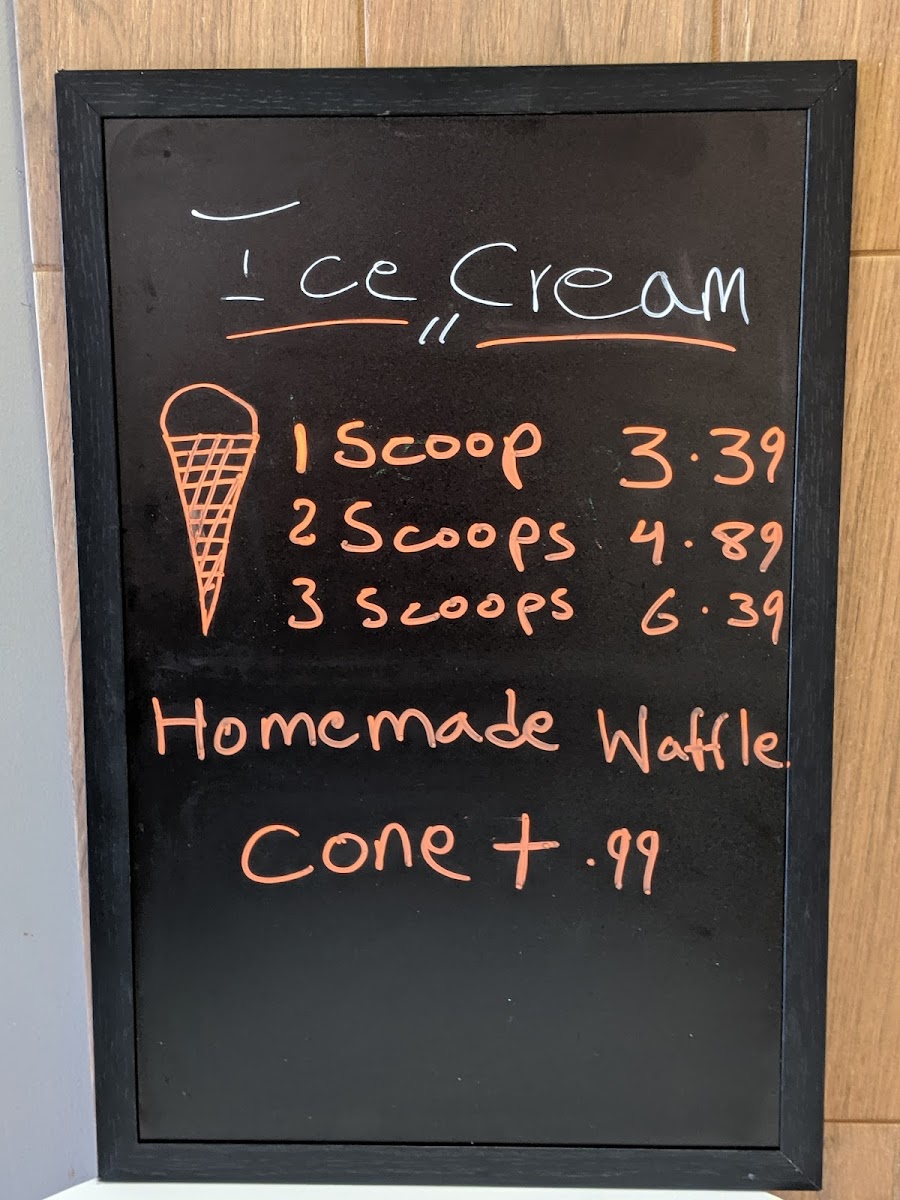 Ice Cream
1 Scoop 3.39
2 Scoops 4.89
3 Scoops 6.39
Homemade Waffle
Cone + .99